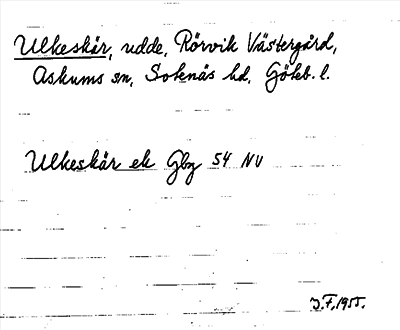 Ulkeskär, udde, Rörvik Västergård,
Askums sn, Sotenäs hd, Göteb. l.
Ulkeskär ek Gbg 54 NV
J.F. 1955.